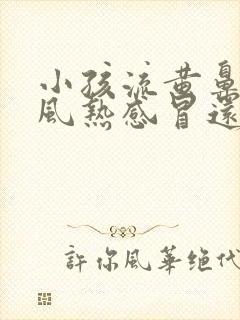 小孩流黄鼻
风热感冒还
許你風華绝代